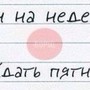 и на неде
дать пятн